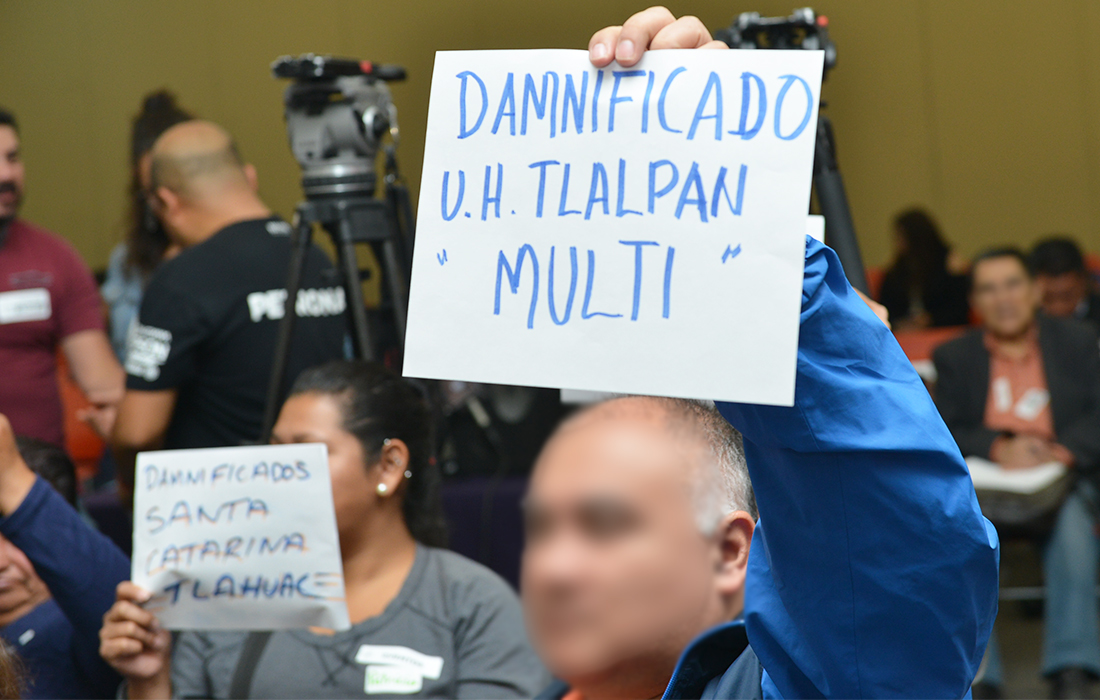 DAMNIFICADO
U.H. TLALPAN
" MULTI "
DAMNIFICADOS
SANTA
CATARINA
TLAHUAC